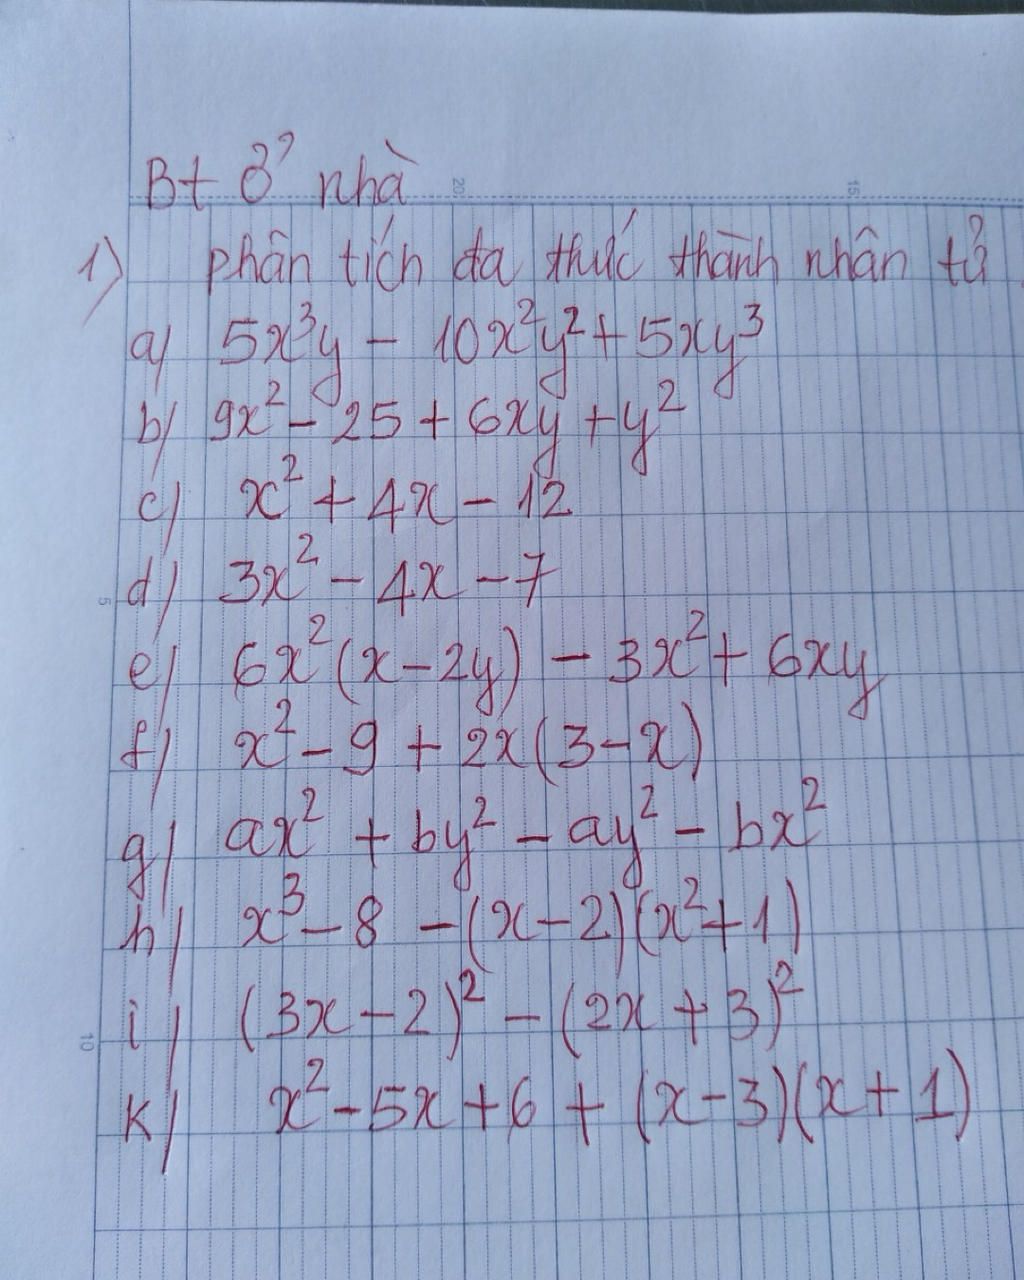 Bt ở nhà
1) phân tích đa thức thành nhân tử.
a) 5x³y - 10x²y² + 5xy³
b) 9x² - 25 + 6xy + y²
c) x² + 4x - 12
d) 3x² - 4x - 7
e) 6x²(x - 2y) - 3x² + 6xy
f) x² - 9 + 2x(3 - x)
g) ax² + by² - ay² - bx²
h) x³ - 8 - (x - 2)(x² + 1)
i) (3x - 2)² - (2x + 3)²
k) x² - 5x + 6 + (x - 3)(x + 1)
20
15
5
10